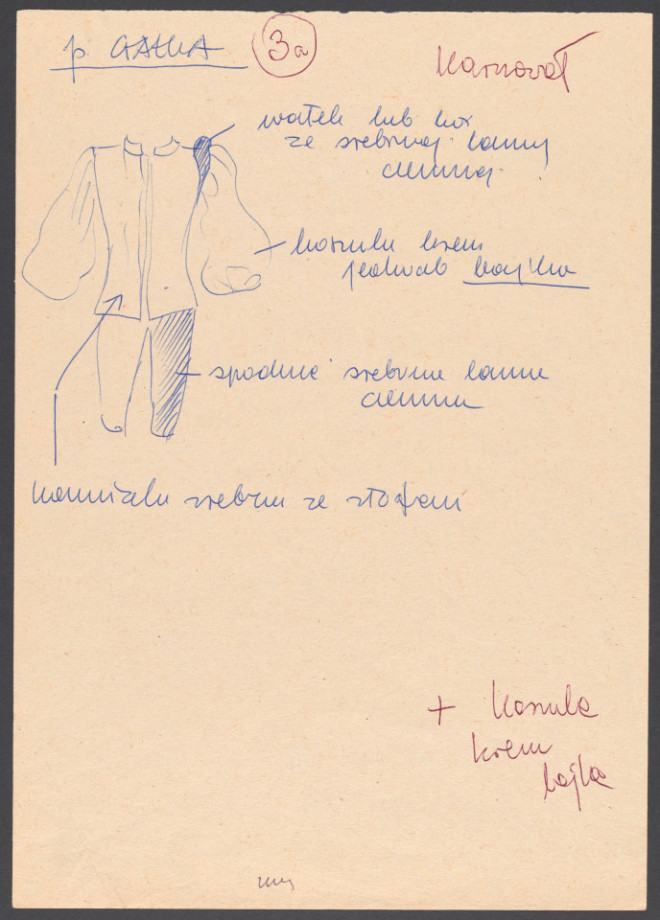 p GAŁKA
3a
Karnawał
wałek lub kor
ze srebrnej lamy
ciemnej
koszula krem
jedwab bajka
spodnie srebrne lama
ciemna
kamizela srebrna ze złotem
+ koszula
krem
bajka